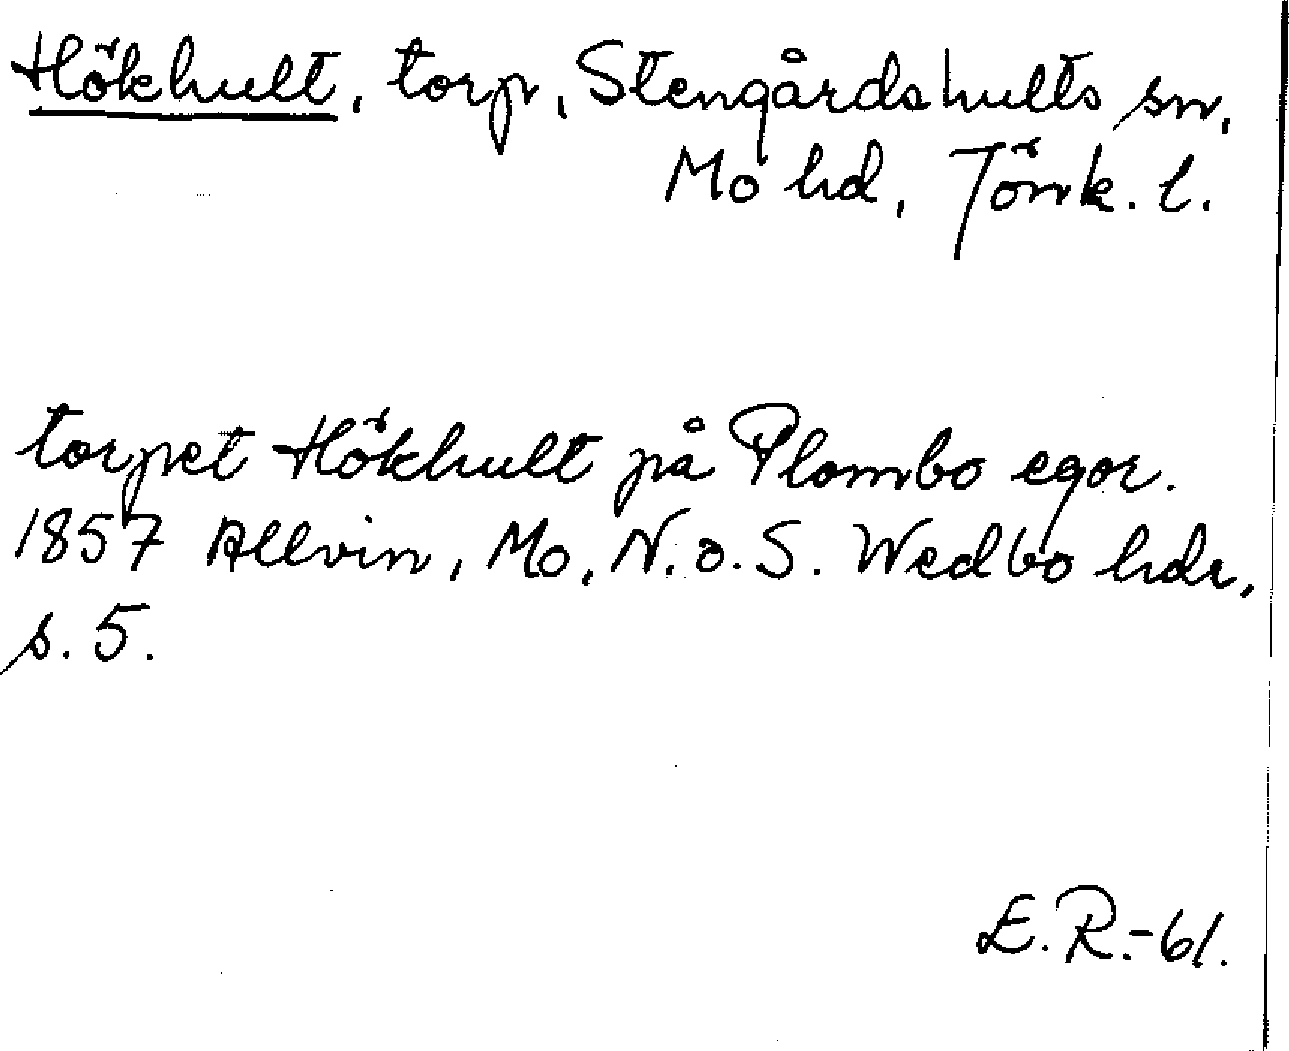 Hökhult, torp, Stengårdshults sn,
Mo hd, Jönk. l.
torpet Hökhult på Plombo egor.
1857 Allvin, Mo, N. o. S. Wedbo hdr,
s. 5.
E. R.-61.